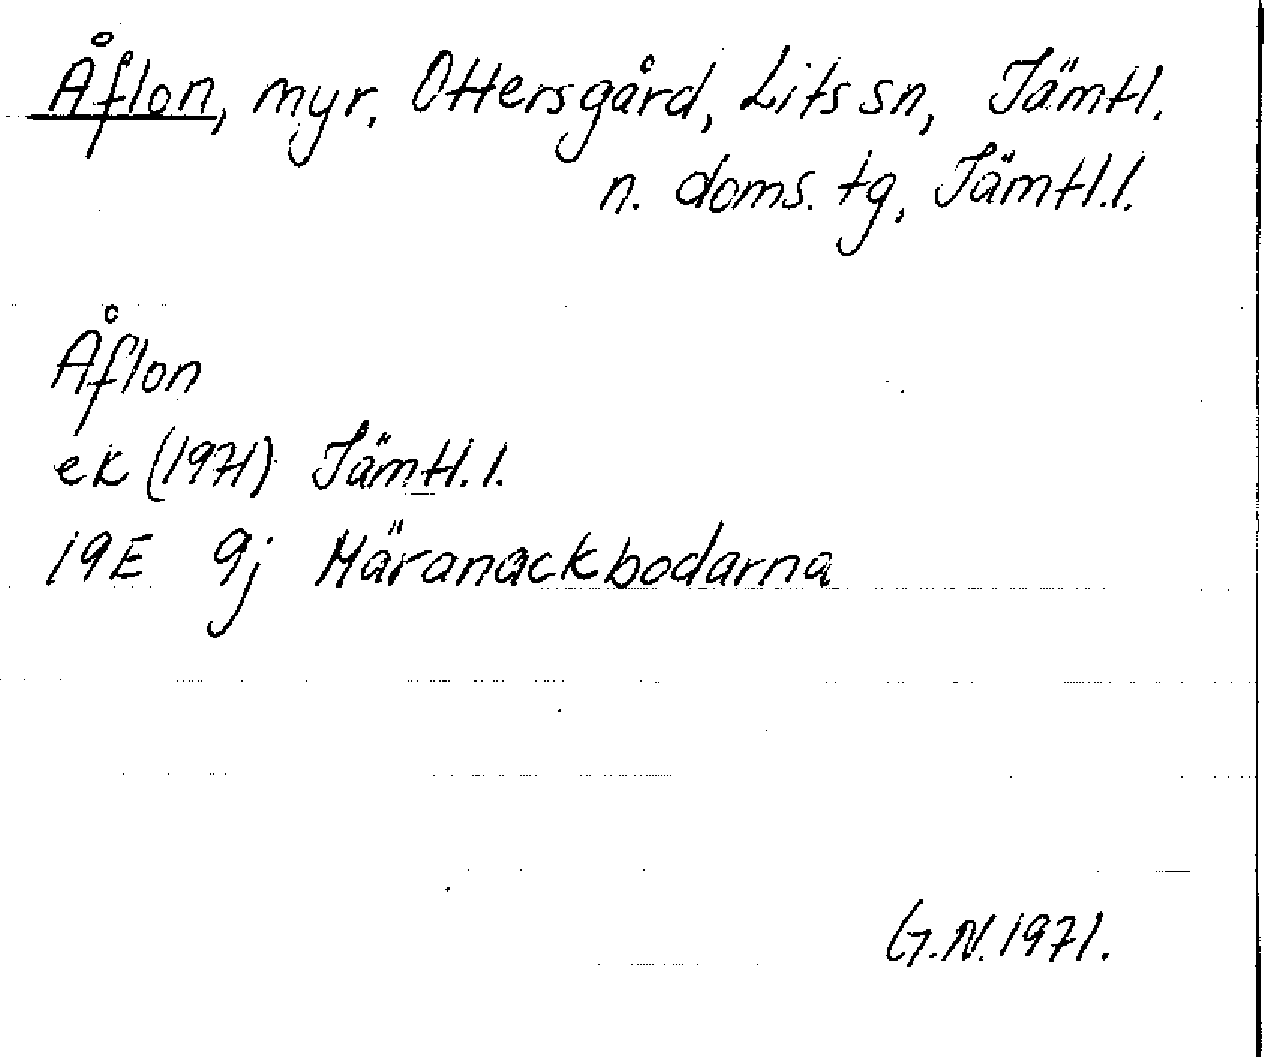 Åflon, myr. Ottersgård, Lits sn, Jämtl.
n. doms. tg, Jämtl.l.
Åflon
ek (1971) Jämtl.l.
19E 9j Märanackbodarna
G.N.1971.